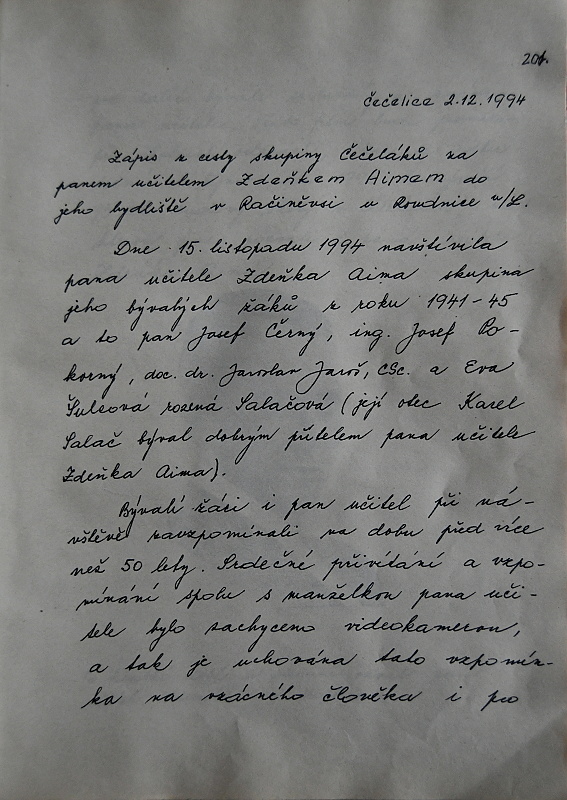 201.
Čečelice 2.12.1994
Zápis z cesty skupiny Čečeláků za
panem učitelem Zdeňkem Aimem do
jeho bydliště v Račiněvsi u Roudnice n/L.
Dne 15. listopadu 1994 navštívila
pana učitele Zdeňka Aima skupina
jeho bývalých žáků z roku 1941-45
a to pan Josef Černý, ing. Josef Po-
korný, doc. dr. Jaroslav Jaroš, CSc. a Eva
Šulcová rozená Salačová (její otec Karel
Salač býval dobrým přítelem pana učitele
Zdeňka Aima).
Bývalí žáci i pan učitel při ná-
vštěvě zavzpomínali na dobu před více
než 50 lety. Srdečné přivítání a vzpo-
mínání spolu s manželkou pana uči-
tele bylo zachyceno videokamerou,
a tak je uchována tato vzpomín-
ka na vzácného člověka i pro